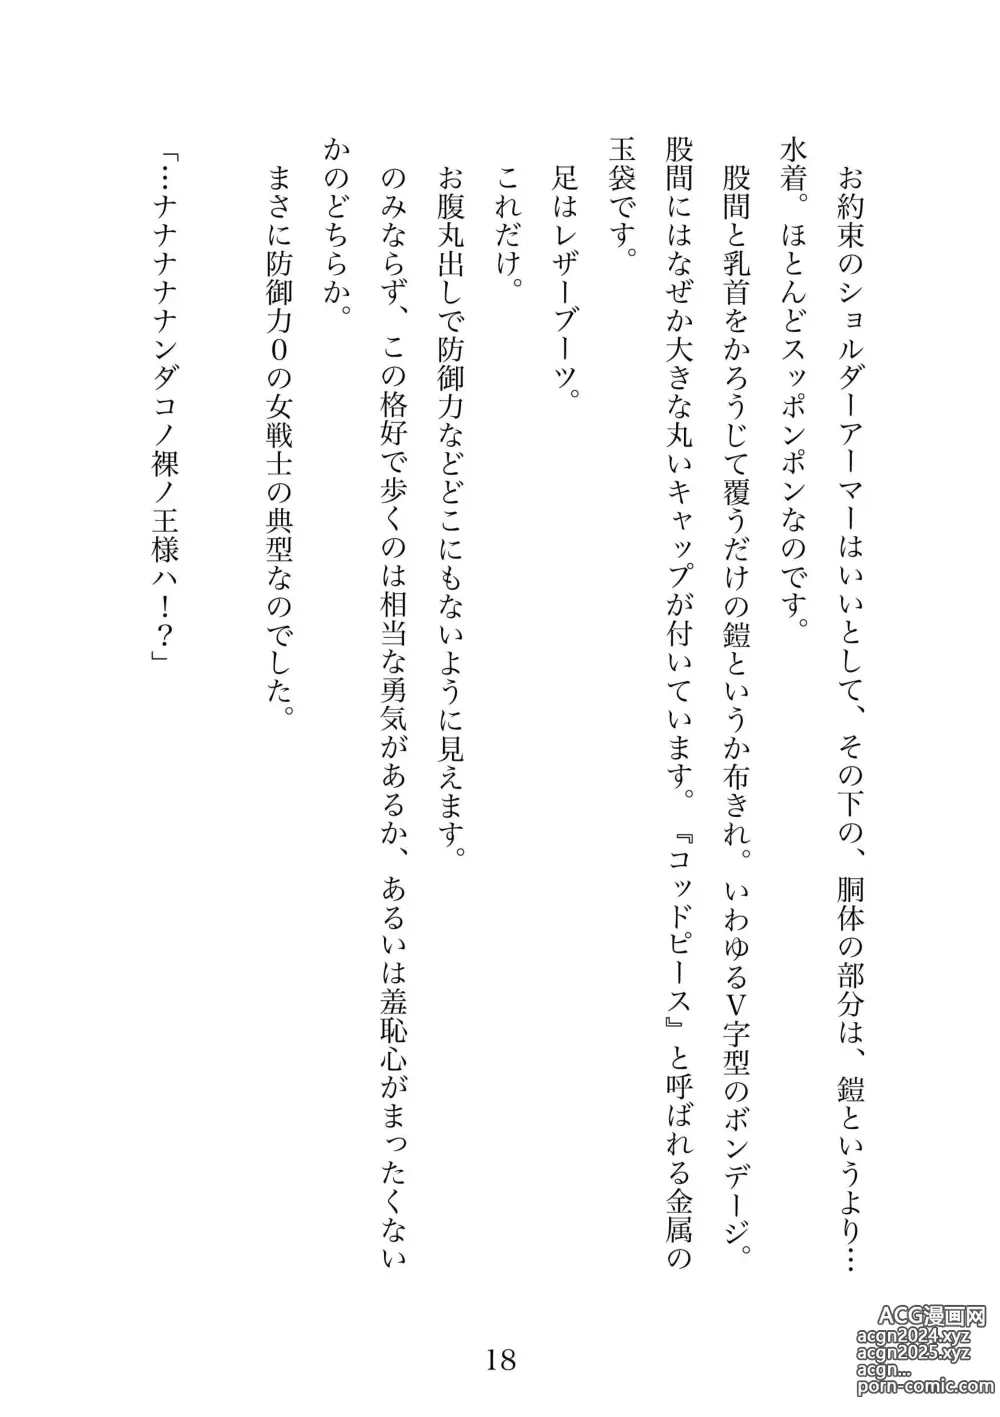 お約束のショルダーアーマーはいいとして、その下の、胴体の部分は、鎧というより…
水着。ほとんどスッポンポンなのです。
　股間と乳首をかろうじて覆うだけの鎧というか布きれ。いわゆるＶ字型のボンデージ。
股間にはなぜか大きな丸いキャップが付いています。『コッドピース』と呼ばれる金属の
玉袋です。
　足はレザーブーツ。
　これだけ。
　お腹丸出しで防御力などどこにもないように見えます。
　のみならず、この格好で歩くのは相当な勇気があるか、あるいは羞恥心がまったくない
かのどちらか。
　まさに防御力０の女戦士の典型なのでした。
「…ナナナナナンダコノ裸ノ王様ハ！？」
18
ACG漫画网
acgn2024.xyz
acgn2025.xyz
acgn...
porn-comic.com